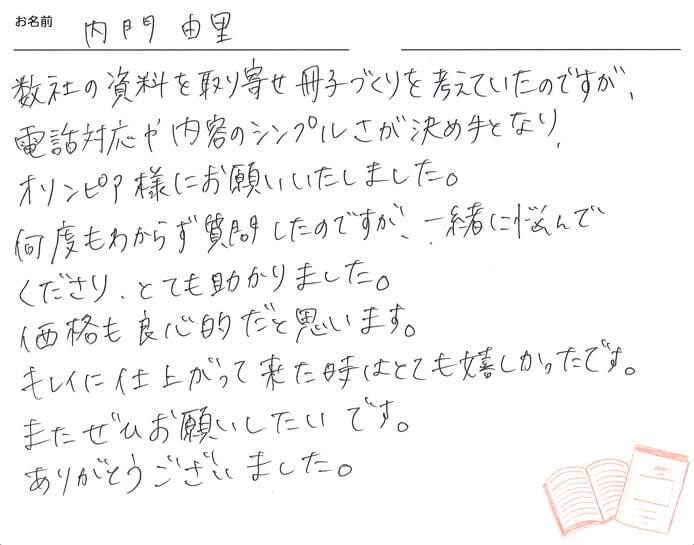 お名前 内門 由里
数社の資料を取り寄せ冊子づくりを考えていたのですが、
電話対応や内容のシンプルさが決め手となり、
オリンピア様にお願いいたしました。
何度もわからず質問したのですが、一緒に悩んで
くださり、とても助かりました。
価格も良心的だと思います。
キレイに仕上がって来た時はとても嬉しかったです。
またぜひお願いしたいです。
ありがとうございました。